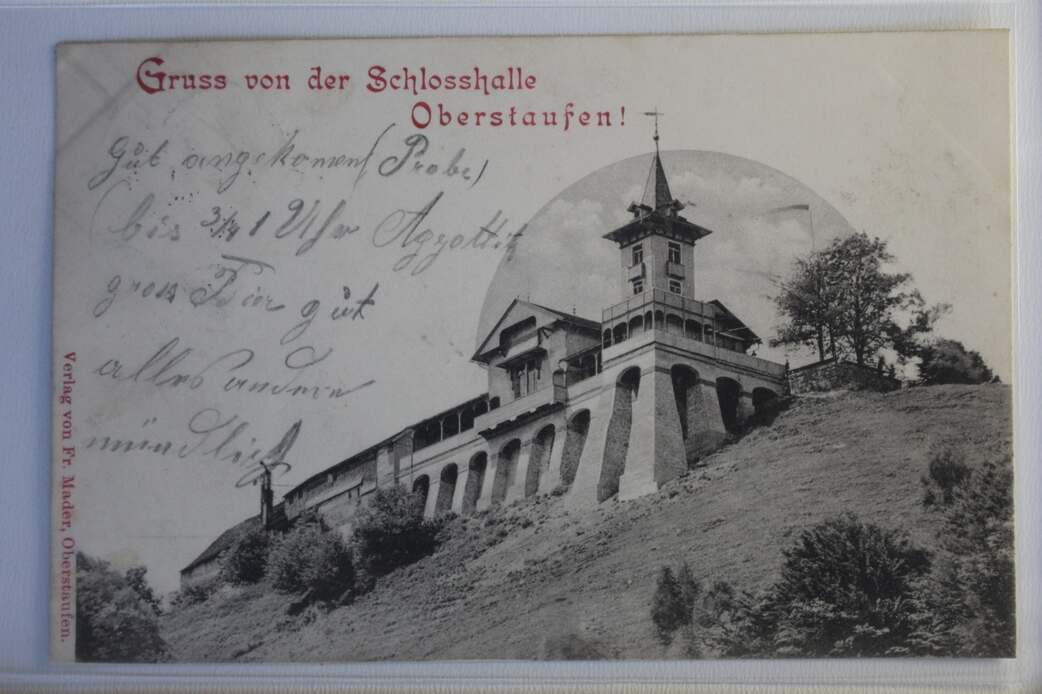 Gruss von der Schlosshalle
Oberstaufen!
Gut angekomen (Probe)
bis 3/4 1 Uhr
gross gut
alles andere
mündlich
Verlag von Fr. Mader, Oberstaufen.